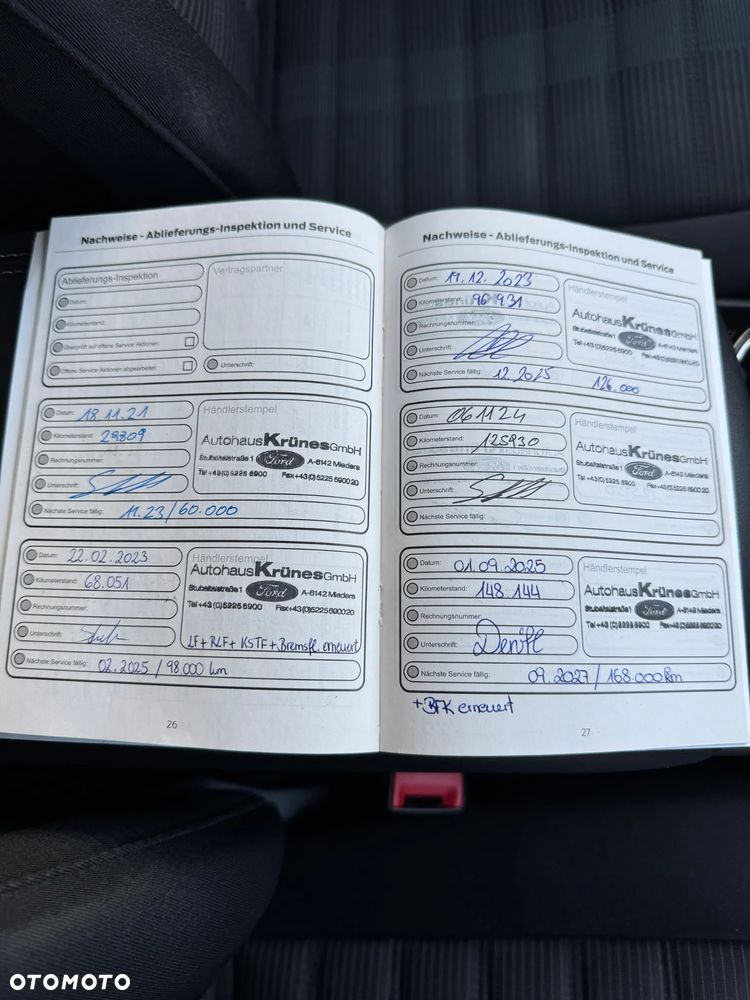 Nachweise - Ablieferungs-Inspektion und Service
Ablieferungs-Inspektion
Datum:
Kilometerstand:
Überprüft auf offene Service Aktionen:
Offene Service Aktionen abgearbeitet:
Vertragspartner
Unterschrift:
Datum: 18.11.21
Kilometerstand: 29809
Rechnungsnummer:
Unterschrift:
Nächste Service fällig: 11.23/60.000
Händlerstempel
Autohaus Krünes GmbH
Stubaitalstraße 1 Ford A-6142 Mieders
Tel +43 (0) 5225 6900 Fax +43 (0) 5225 6900 20
Datum: 22.02.2023
Kilometerstand: 68.051
Rechnungsnummer:
Unterschrift:
Nächste Service fällig: 02.2025 / 98.000 km
Händlerstempel
Autohaus Krünes GmbH
Stubaitalstraße 1 Ford A-6142 Mieders
Tel +43 (0) 5225 6900 Fax +43 (0) 5225 6900 20
LF + RLF + KSTF + Bremsfl. erneuert
26
Nachweise - Ablieferungs-Inspektion und Service
Datum: 19.12.2023
Kilometerstand: 96931
Rechnungsnummer:
Unterschrift:
Nächste Service fällig: 12.2025 126.000
Händlerstempel
Autohaus Krünes GmbH
Stubaitalstraße 1 Ford A-6142 Mieders
Tel +43 (0) 5225 6900 Fax +43 (0) 5225 6900 20
Datum: 061124
Kilometerstand: 125930
Rechnungsnummer:
Unterschrift:
Nächste Service fällig:
Händlerstempel
Autohaus Krünes GmbH
Stubaitalstraße 1 Ford A-6142 Mieders
Tel +43 (0) 5225 6900 Fax +43 (0) 5225 6900 20
Datum: 01.09.2025
Kilometerstand: 148.144
Rechnungsnummer:
Unterschrift:
Nächste Service fällig: 09.2027 / 168.000km
Händlerstempel
Autohaus Krünes GmbH
Stubaitalstraße 1 Ford A-6142 Mieders
Tel +43 (0) 5225 6900 Fax +43 (0) 5225 6900 20
+ BFK erneuert
27
OTOMOTO